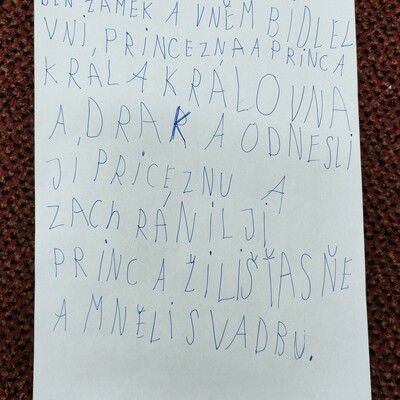 JEN ZÁMEK A VNĚM BIDLEL
VNÍ, PRINCEZŅA A PRINC A
KRAL A KRÁLOVNA
A, DRAK A ODNESLI
JÍ PRICEZNU A
ZACh RÁNIL JÍ
PRINC A ŽILI ŠŤASŇE
A MNĚLI SVADBU.